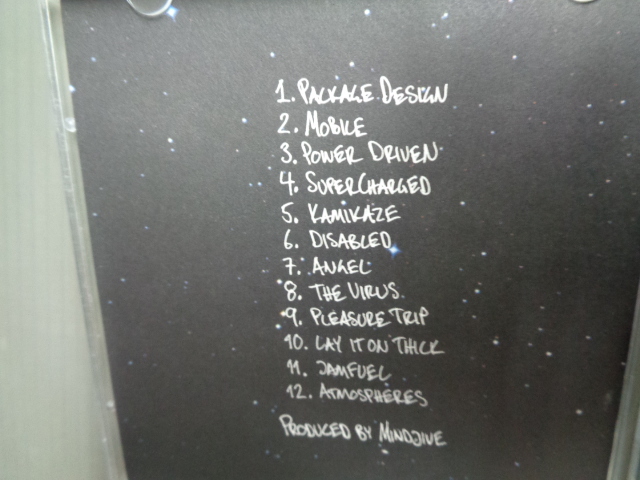 1. PACKAGE DESIGN
2. MOBILE
3. POWER DRIVEN
4. SUPERCHARGED
5. KAMIKAZE
6. DISABLED
7. ANGEL
8. THE VIRUS
9. PLEASURE TRIP
10. LAY IT ON THICK
11. JAMFUEL
12. ATMOSPHERES
PRODUCED BY MINDJIVE